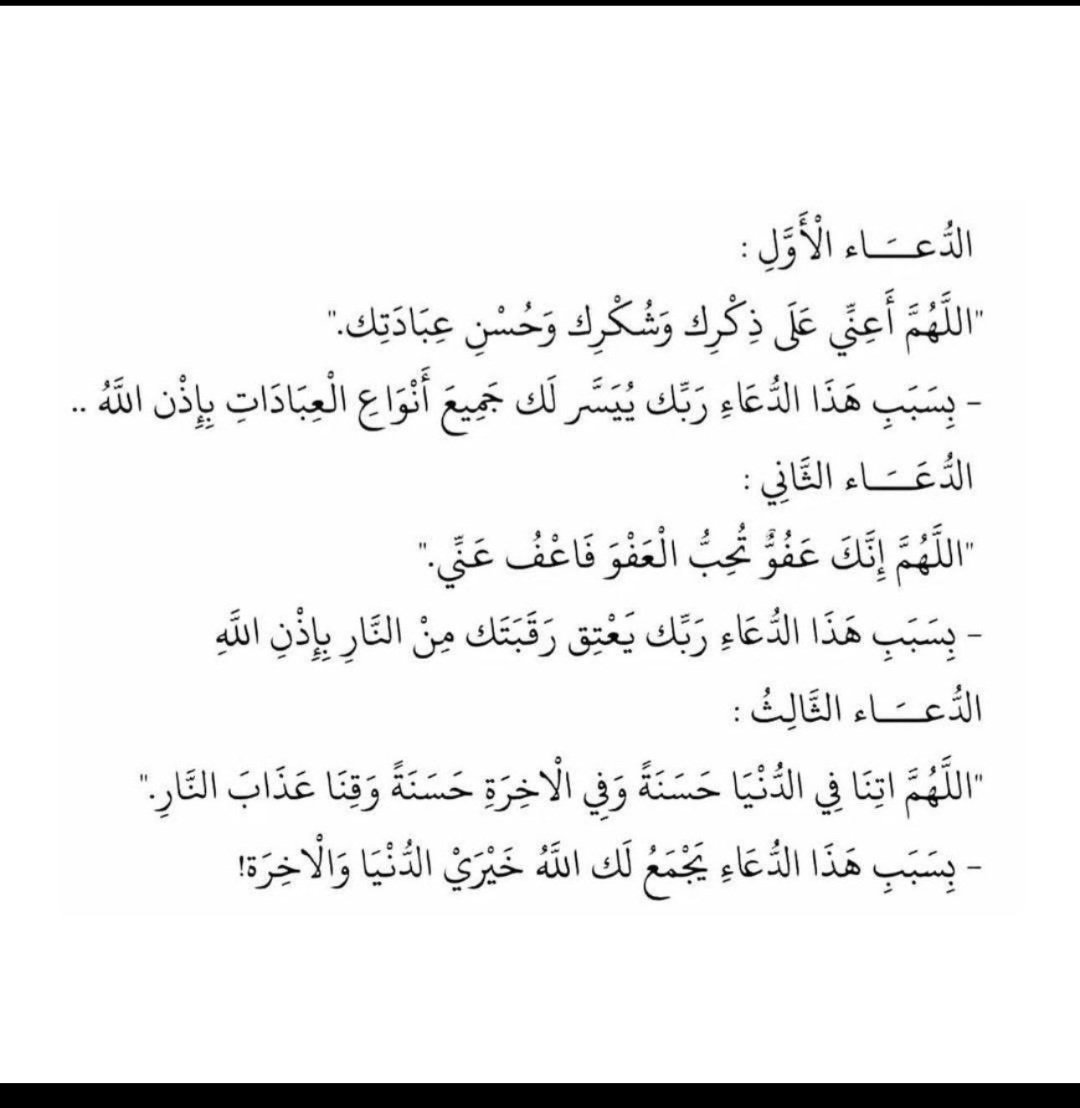 الدُّعَـــاء الْأَوَّلِ :
"اللَّهُمَّ أَعِنِّي عَلَى ذِكْرِك وَشُكْرِك وَحُسْنِ عِبَادَتِك."
- بِسَبَبِ هَذَا الدُّعَاءِ رَبِّك يُيَسَّر لَك جَمِيعَ أَنْوَاعِ الْعِبَادَاتِ بِإِذْن اللَّهُ ..
الدُّعَـــاء الثَّانِي :
"اللَّهُمَّ إِنَّكَ عَفُوٌّ تُحِبُّ الْعَفْوَ فَاعْفُ عَنِّي."
- بِسَبَبِ هَذَا الدُّعَاءِ رَبِّك يَعْتِق رَقَبَتَك مِنْ النَّارِ بِإِذْنِ اللَّهِ
الدُّعَـــاء الثَّالِثُ :
"اللَّهُمَّ اتِنَا فِي الدُّنْيَا حَسَنَةً وَفِي الْاخِرَةِ حَسَنَةً وَقِنَا عَذَابَ النَّارِ."
- بِسَبَبِ هَذَا الدُّعَاءِ يَجْمَعُ لَك اللَّهُ خَيْرَيْ الدُّنْيَا وَالْاخِرَة!